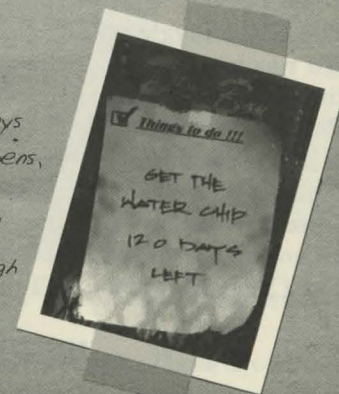 ys
ens,
gh
Things to do !!!
GET THE
WATER CHIP
120 DAYS
LEFT